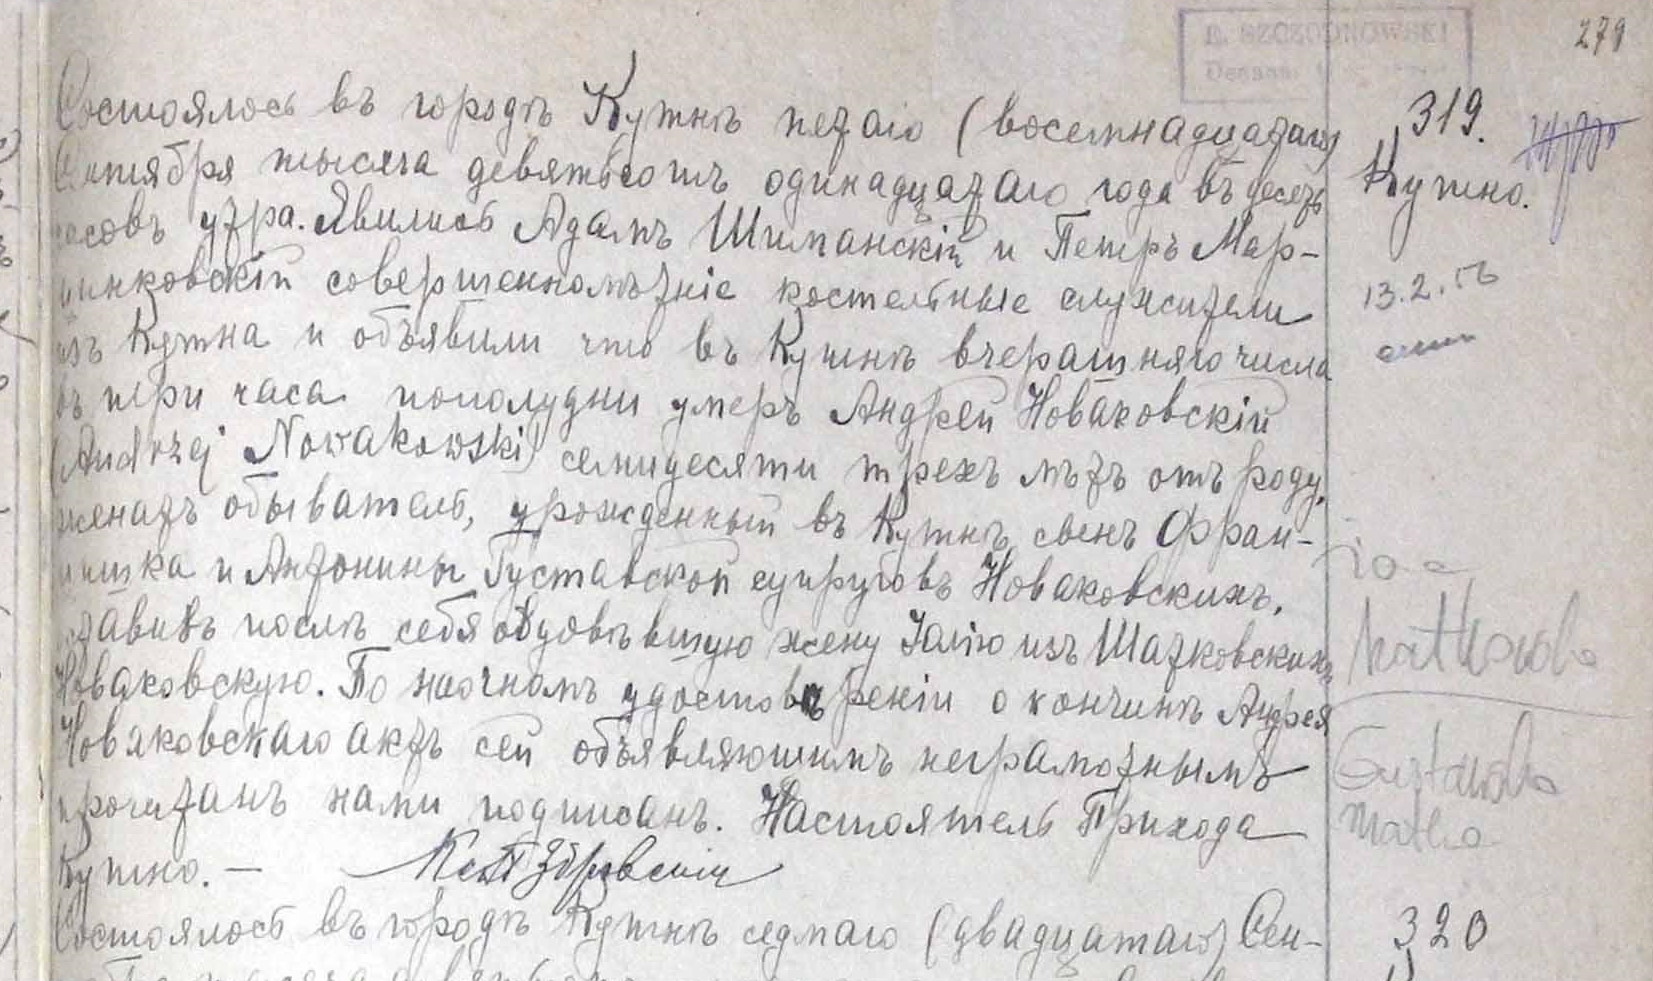 279
Состоялось въ городѣ Кутнѣ пятаго (восемнадцатаго)
319.
Октября тысяча девятьсотъ одинадцатаго года въ десять
Кутно.
часовъ утра. Явились Адамъ Шиманскій и Петръ Мар-
цинковскій совершеннолѣтніе костельные служители
13.2.
изъ Кутна и объявили что въ Кутнѣ вчерашняго числа
въ три часа пополудни умеръ Андрей Новаковскій
(Andrzej Nowakowski) семидесяти трехъ лѣтъ отъ роду,
женатъ обыватель, урожденный въ Кутнѣ сынъ Фран-
цишка и Антонины Густавской супруговъ Новаковскихъ,
оставивъ послѣ себя овдовѣвшую жену Юлію изъ Шатковскихъ
Новаковскую. По наочномъ удостовѣреніи о кончинѣ Андрея
Новаковскаго актъ сей объявляющимъ неграмотнымъ
Gustowska
прочитанъ нами подписанъ. Настоятель Прихода
matka
Кутно. —
Состоялось въ городѣ Кутнѣ седмаго (двадцатаго) Сен-
320